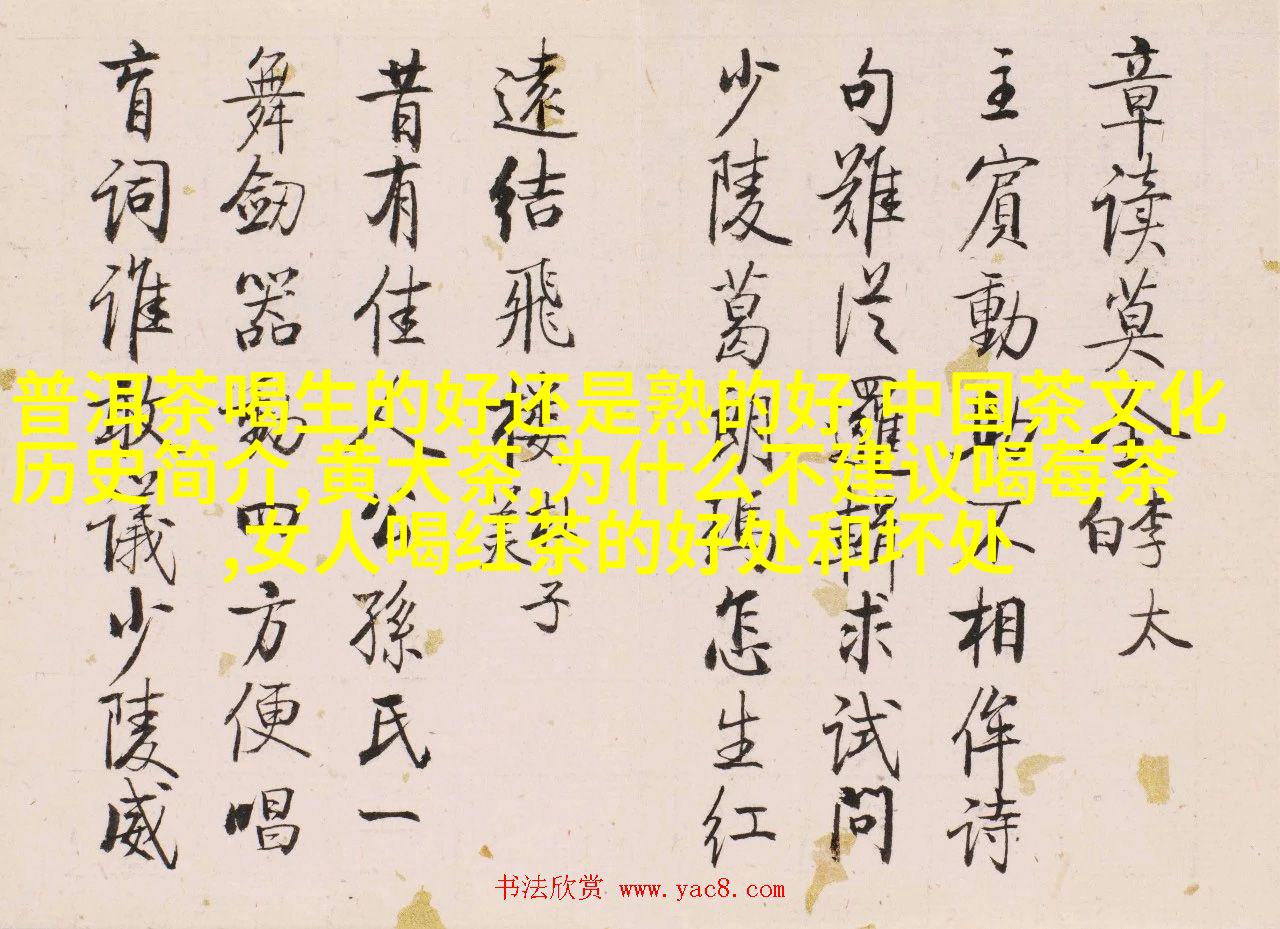 章读莫李太白
主賓動不相侔詩
句難從羅求試問
少陵葛朗瑪怎生红
遠結飛樓子
昔有佳人公孫氏一
舞劒器動四方便唱
盲词誰敢議少陵威
普洱茶喝生的好还是熟的好,中国茶文化
历史简介,黄大茶,为什么不建议喝莓茶
,女人喝红茶的好处和坏处
书法欣赏 www.yac8.com